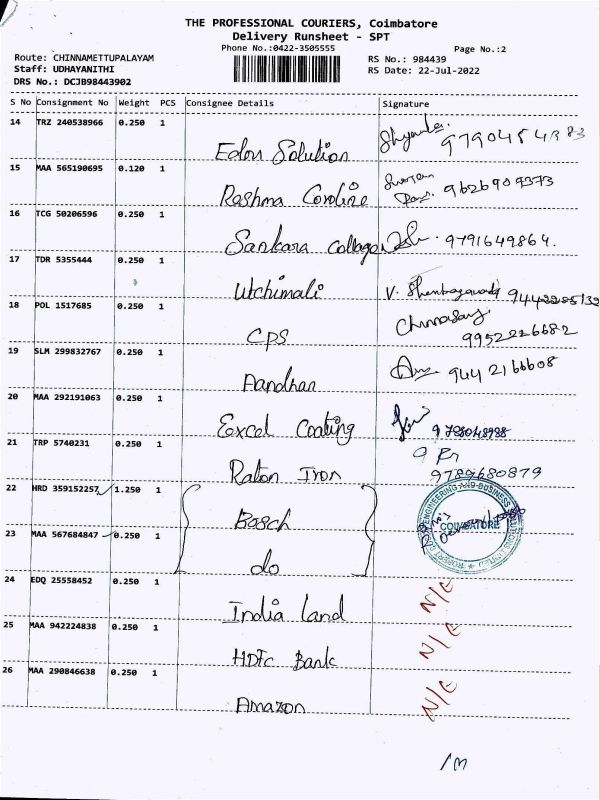 THE PROFESSIONAL COURIERS, Coimbatore
Delivery Runsheet - SPT
Phone No.:0422-3505555
Page No.:2
Route: CHINNAMETTUPALAYAM
RS No.: 984439
Staff: UDHAYANITHI
RS Date: 22-Jul-2022
DRS No.: DCJB98443902
S No Consignment No Weight PCS Consignee Details Signature
14 TRZ 240538966 0.250 1
Edon Solution
15 MAA 565190695 0.120 1
Rashma Coroline 9626909373
16 TCG 50206596 0.250 1
Sankara College 9791649864.
17 TDR 5355444 0.250 1
Utchimali V.
18 POL 1517685 0.250 1
CPS 9952226682
19 SLM 299832767 0.250 1
Aandhan 9442166608
20 MAA 292191063 0.250 1
Excel Coating
21 TRP 5740231 0.250 1
Raton Iron 9789680879
22 HRD 359152257 1.250 1
Bosch
23 MAA 567684847 0.250 1
do
COIMBATORE
24 EDQ 25558452 0.250 1
India land N/C
25 MAA 942224838 0.250 1
HDFC Bank N/C
26 MAA 290846638 0.250 1
Amazon N/C